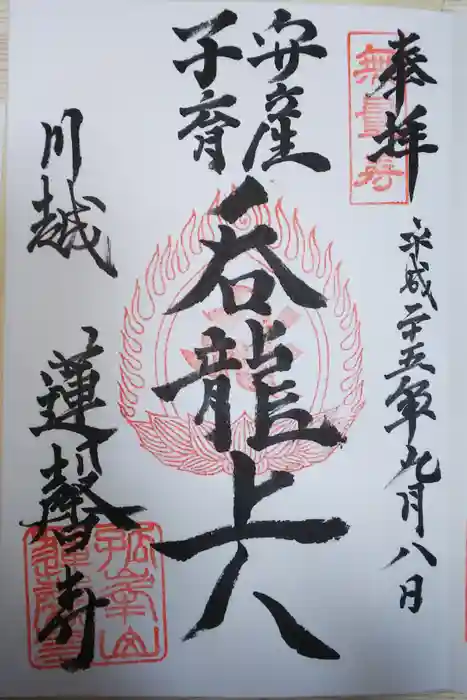 奉拝
無量寿
平成二十五年九月八日
安産
子育
呑龍上人
川越 蓮馨寺
孤峯山
蓮馨寺